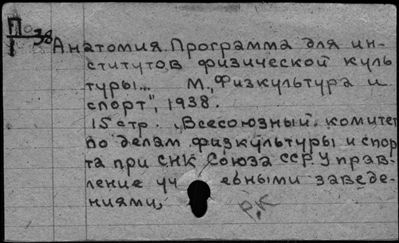 П
1 38
Анатомия. Программа для ин-
ститутов физической куль
туры... М., „Физкультура и
спорт", 1938.
15 стр. „Всесоюзный комитет
по делам физкультуры и спор
та при СНК Союза ССР. Управ-
ление уч ебными заведе-
ниями,
Р.К